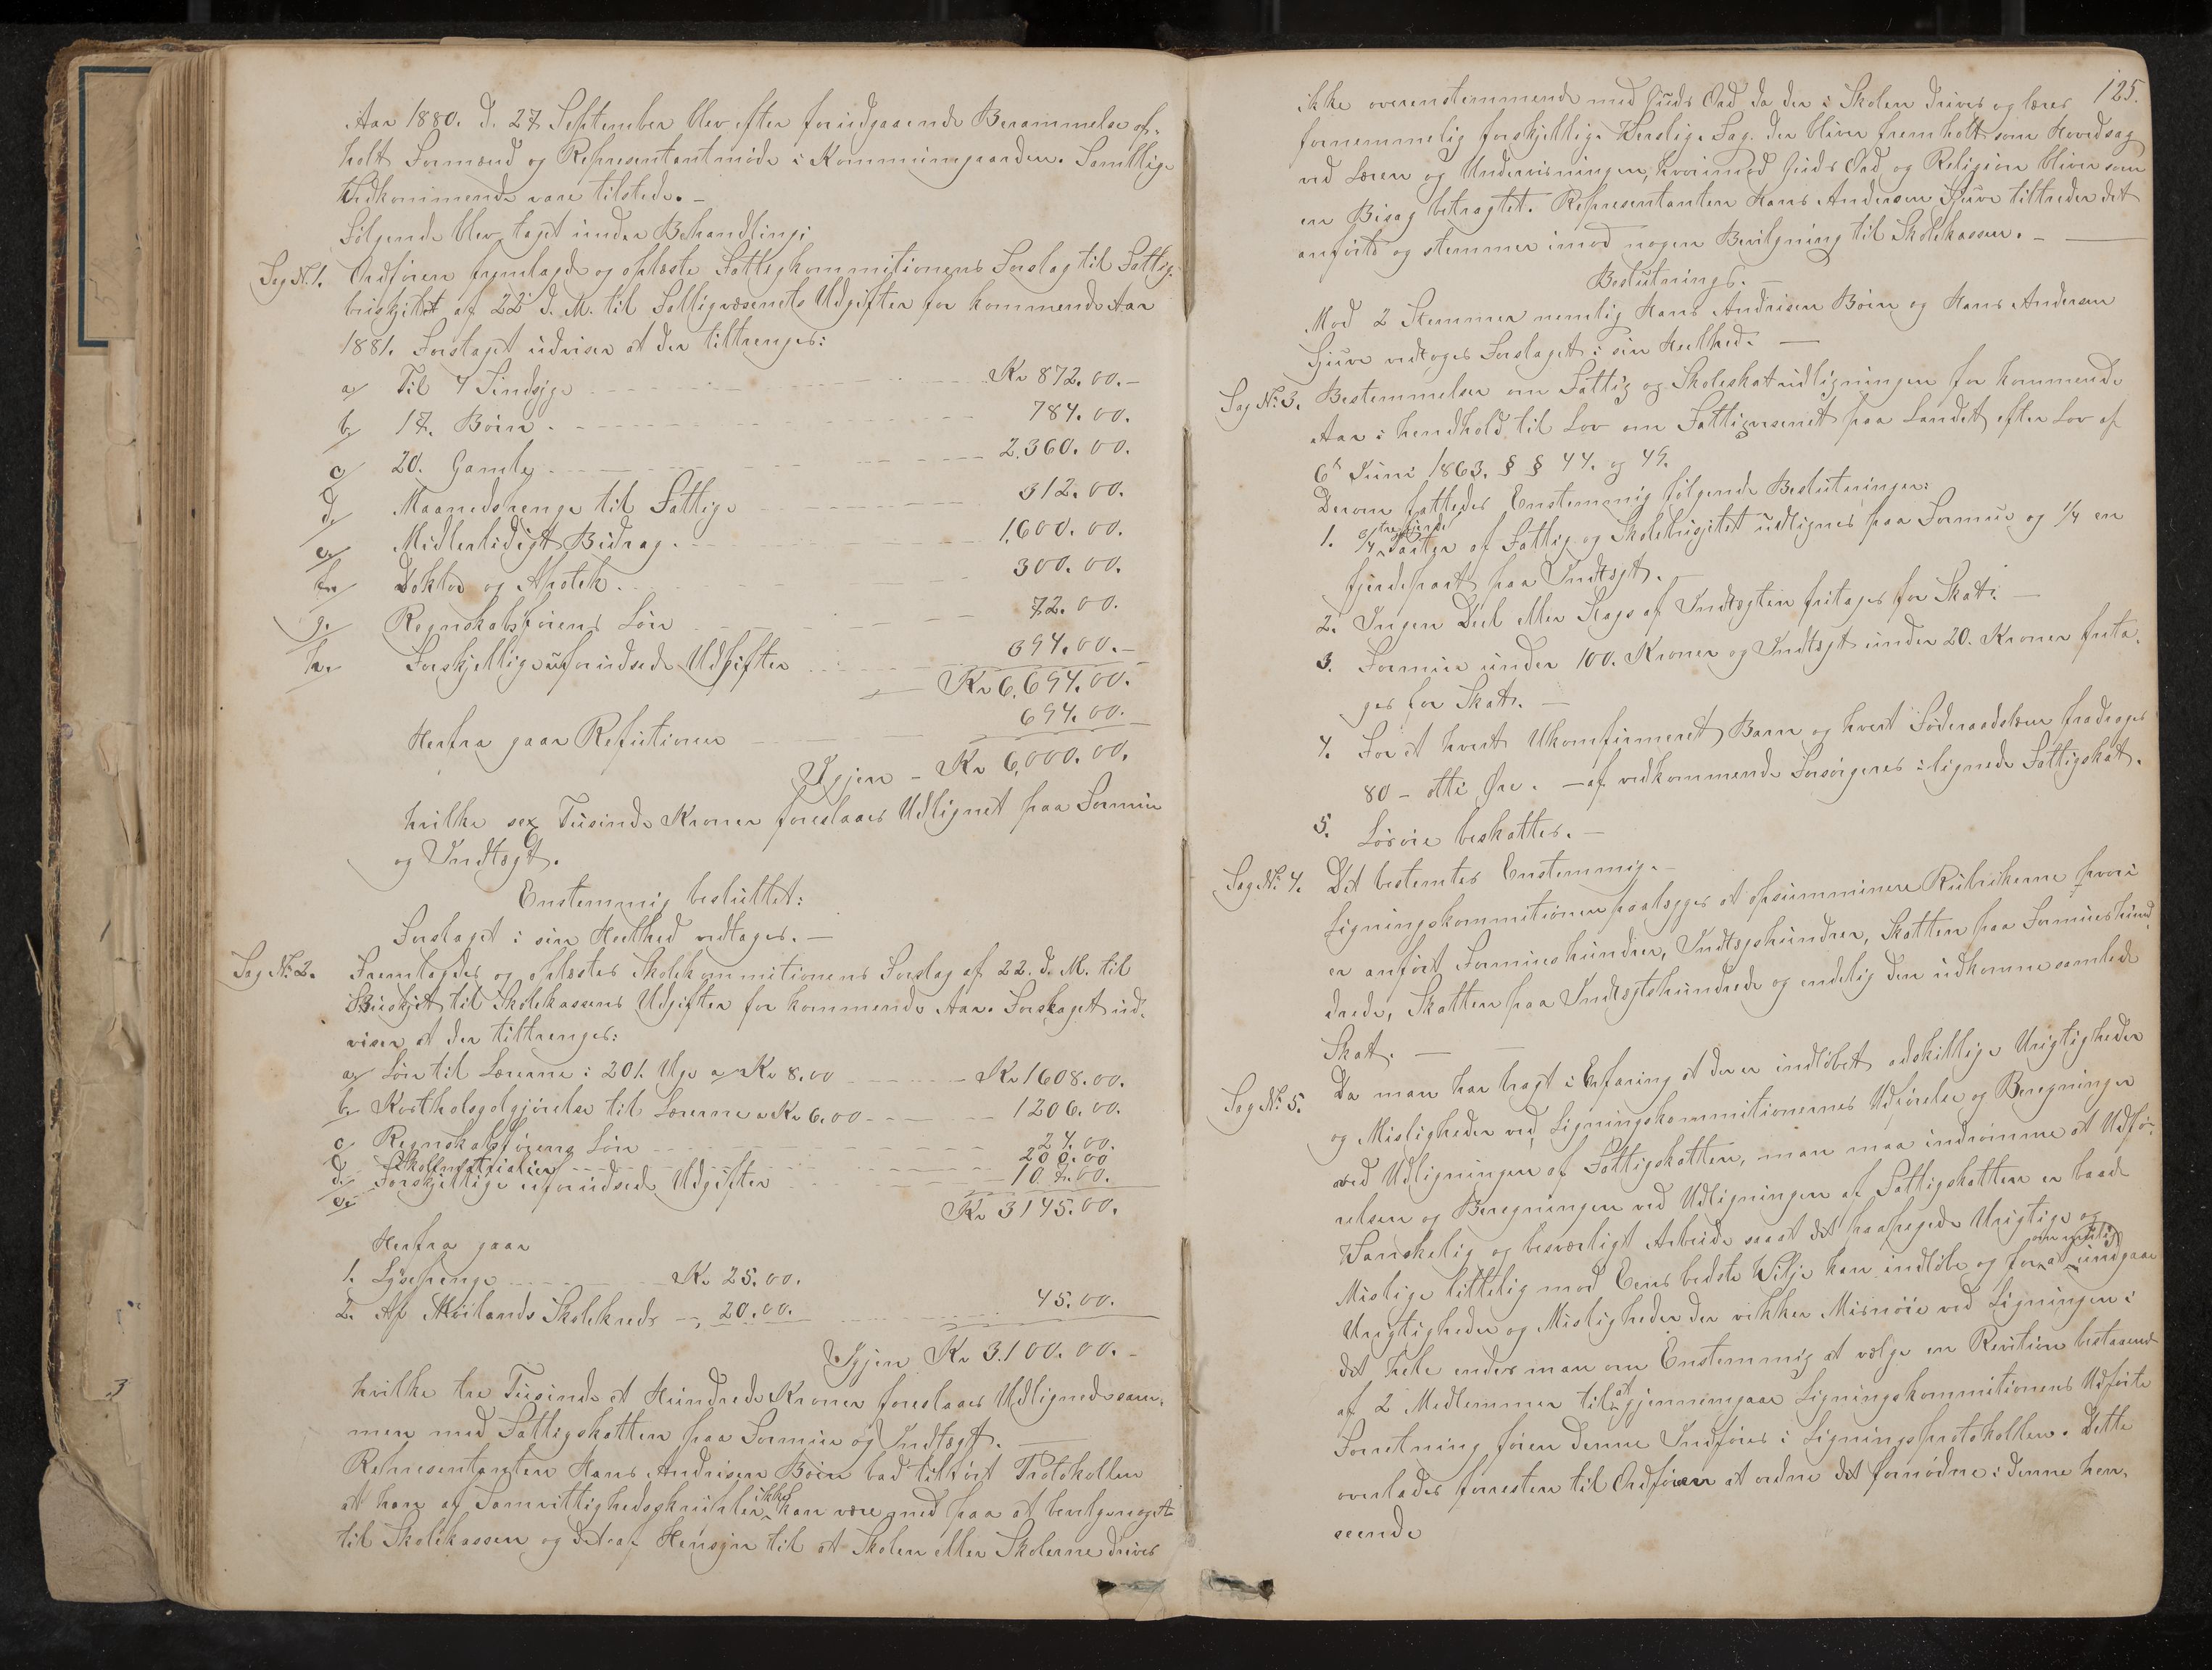 Aar 1880. d. 27 September blev efter forudgaaende Berammelse af-
holt Formænd og Representantmøde i Kommunegaarden. Samtlige
Vedkommende vare tilstede. -
Følgende blev taget under Behandling:
Sag No. 1. Ordføren fremlagde og oplæste Fattigkommitionens Forslag til Fattig-
busjitet af 22de d. M. til Fattigvæsenets Udgifter for kommende Aar
1881. Forslaget udviser at der tiltrenges:
a/ Til 4 Sindsyge Kr 872.00.-
b/ 17. Børn. 784.00.
c/ 20. Gamle 2.360.00.
d/ Maanedspenge til Fattige 312.00.
e/ Midlertidigt Bidrag. 1,600.00.
f/ Doktor og Apotek. 300.00.
g/ Regnskabsførens Løn 72.00.
h/ Forskjellige uforudsede Udgifter 394.00.-
Kr 6,694.00.
Herfra gaar Refutioner 694.00.
Igjen - Kr 6,000.00.
hvilke sex Tusinde Kroner foreslaaes Udlignet paa Formue
og Indtægt.
Enstemmig besluttet:
Forslaget i sin Heelhed vedtages. -
Sag No. 2. Fremlagdes og oplæstes Skolekommitionens Forslag af 22. d. M. til
Buskjet til Skolekassens Udgifter for kommende Aar. Forslaget ud-
viser at der tiltrenges:
a/ Løn til Lærerne i 201. Uge a/ Kr 8.00 Kr 1608.00.
b/ Kostholsgolgjørelse til Lærerne a Kr 6.00 1206.00.
c/ Regnskabsførens Løn 24.00.
d/ Skolematrialier 200.00
e/ Forskjellige uforudsede Udgifter 107.00.
Kr 3145.00.
Herfra gaar
1. Lysepenge Kr 25.00.
2. Af Moilands Skolekreds -,, 20.00. 45.00.
Igjen Kr 3.100.00.-
hvilke tre Tusinde et Hundrede Kroner foreslaaes Udlignede sam-
men med Fattigskatten paa Formue og Indtægt.
Representanten Hans Andrisen Bøen bad tilført Protokollen
at han af Samvittighedsskrubler ikke kan være med paa at bevilge noget
til Skolekassen og det af Hensyn til at Skolen eller Skolerne drives
125.
ikke overenstemmende med Guds Ord da der i Skolen drives og læres
fornemmelig forskjellige Verslige Sag. der bliver fremholt som Hovedsag
ved Læren og Undervisningen, hvorimod Guds Ord og Religion bliver som
en Bisag betragtet. Representanten Hans Andersen Gjuve tiltreder det
anførte og stemmer imod nogen Bevilgning til Skolekassen. -
Beslutnings. -
Mod 2 Stemmer nemlig Hans Andrisen Bøen og Hans Andersen
Gjuve vedtoges Forslaget i sin Heelhed. -
Sag No. 3. Bestemmelser om Fattig og Skoleskatudligningen for kommende
Aar i henhold til Lov om Fattigvæsenet paa Landet efter Lov af
6te Juni 1863. § § 44. og 49.
Derom fattedes Enstemmig følgende Beslutninger:
1. 3/4 tre fjerde Parter af Fattig og Skolebusjitet udlignes paa Formue og 1/4 en
fjerdepart paa Indtægt. -
2. Ingen Deel eller Slags af Indtægten fritages for Skat. -
3. Formue under 100. Kroner og Indtægt under 20. Kroner frita-
ges for Skat. -
4. For et hvert Ukomfirmeret Barn og hvert Føderaadslem fradrages
80 - otti Øre. - af vedkommende Forsørgeres ilignede Fattigskat.
5. Løsøre beskattes. -
Sag No. 4. Det bestemtes Enstemmig. -
Ligningskommitionen paalægges at opsumminere Rubrikerne hvori
er anført Formueshundrer, Indtægshundrer, Skatten paa Formueshund-
drede, Skatten paa Indtægtshundrede og endelig den udkomne samlede
Skat. -
Sag No. 5. Da man har bragt i Erfaring at der er indløbet adskillige Urigtigheder
og Misligheder ved Ligningskommitionernes Udførelse og Beregninger
ved Udligningen af Fattigskatten, man maa indrømme at Udfø-
relsen og Beregningen ved Udligningen af Fattigskatten er baade
Vanskelig og besværligt Arbeide saast det paapegede Urigtige og
Mislige lettelig mod Eens bedste Vilje kan indløbe og for om mulig at undgaae
Urigtigheder og Misligheder der vekker Misnøie ved Ligningen i
det hele endes man om Enstemmig at vælge en Revition bestaaende
af 2 Medlemmer til at gjennemgaae Ligningskommitionens Udførte
Forretning føren denne Indføres i Ligningsprotokollen. Dette
overlades forresten til Ordføren at ordne det fornødne i denne hen-
seende